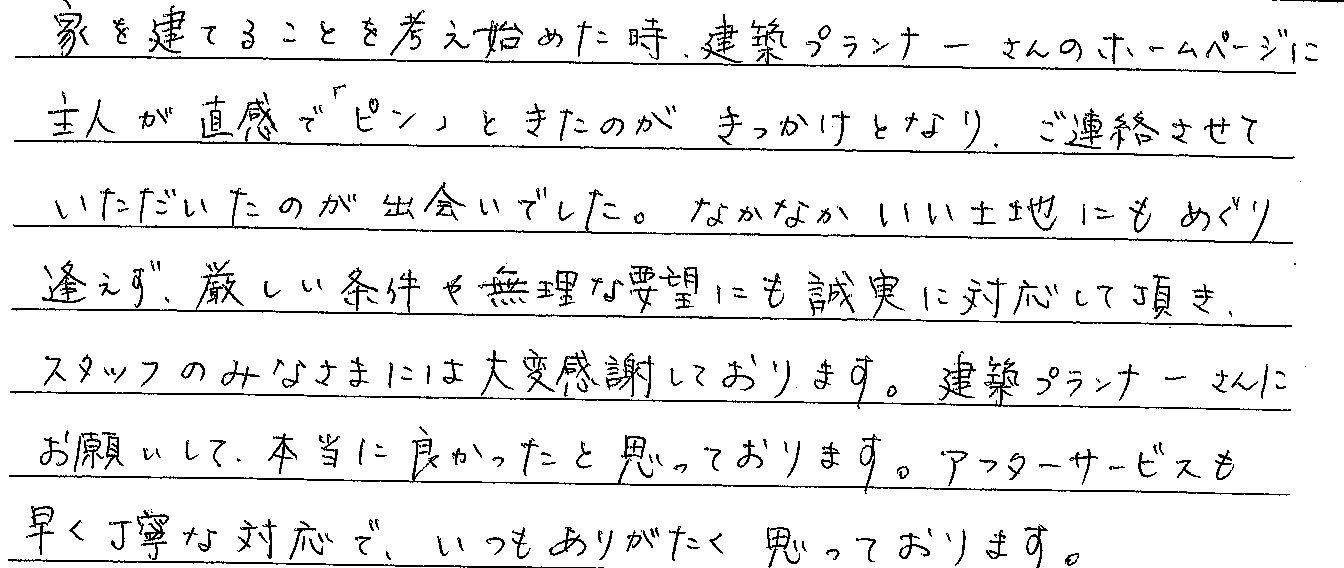 家を建てることを考え始めた時、建築プランナーさんのホームページに
主人が直感で「ピン」ときたのがきっかけとなり、ご連絡させて
いただいたのが出会いでした。なかなかいい土地にもめぐり
逢えず、厳しい条件や無理な要望にも誠実に対応して頂き、
スタッフのみなさまには大変感謝しております。建築プランナーさんに
お願いして、本当に良かったと思っております。アフターサービスも
早く丁寧な対応で、いつもありがたく思っております。